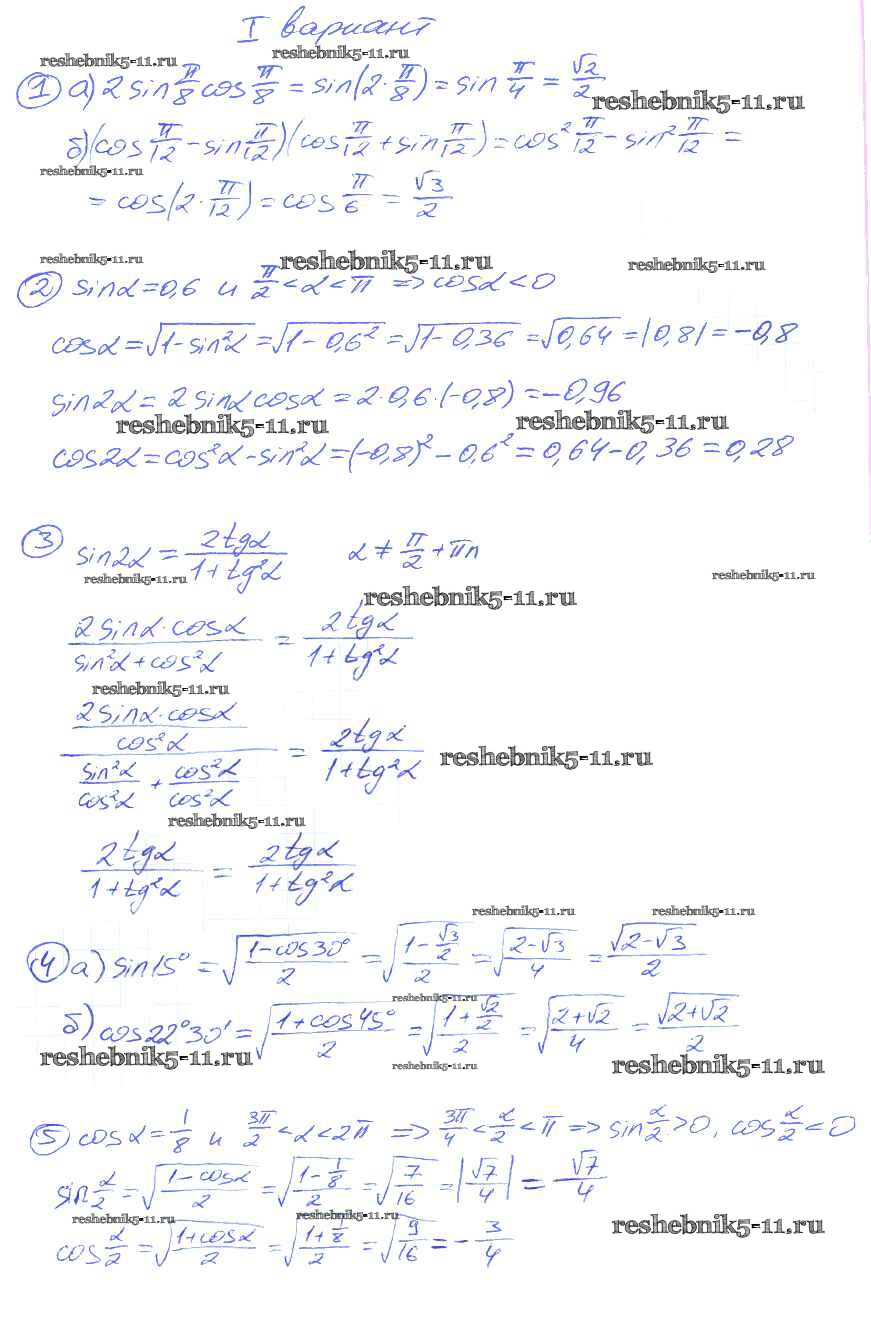 I вариант
reshebnik5-11.ru reshebnik5-11.ru
1 а) 2 sin π/8 cos π/8 = sin(2·π/8) = sin π/4 = √2/2
reshebnik5-11.ru
б) (cos π/12 - sin π/12)(cos π/12 + sin π/12) = cos² π/12 - sin² π/12 =
reshebnik5-11.ru
= cos(2·π/12) = cos π/6 = √3/2
reshebnik5-11.ru reshebnik5-11.ru reshebnik5-11.ru
2 sinα = 0,6 и π/2 < α < π => cosα < 0
cosα = √(1-sin²α) = √(1-0,6²) = √(1-0,36) = √0,64 = |0,8| = -0,8
sin2α = 2 sinα cosα = 2·0,6·(-0,8) = -0,96
reshebnik5-11.ru reshebnik5-11.ru
cos2α = cos²α - sin²α = (-0,8)² - 0,6² = 0,64 - 0,36 = 0,28
3 sin2α = 2tgα/(1+tg²α) α ≠ π/2 + πn
reshebnik5-11.ru reshebnik5-11.ru
reshebnik5-11.ru
(2 sinα·cosα)/(sin²α + cos²α) = 2tgα/(1+tg²α)
reshebnik5-11.ru
((2 sinα·cosα)/cos²α)/(sin²α/cos²α + cos²α/cos²α) = 2tgα/(1+tg²α)
reshebnik5-11.ru
reshebnik5-11.ru
2tgα/(1+tg²α) = 2tgα/(1+tg²α)
reshebnik5-11.ru reshebnik5-11.ru
4 а) sin15° = √((1-cos30°)/2) = √((1-√3/2)/2) = √((2-√3)/4) = √(2-√3)/2
reshebnik5-11.ru
б) cos22°30' = √((1+cos45°)/2) = √((1+√2/2)/2) = √((2+√2)/4) = √(2+√2)/2
reshebnik5-11.ru reshebnik5-11.ru reshebnik5-11.ru
5 cosα = 1/8 и 3π/2 < α < 2π => 3π/4 < α/2 < π => sin α/2 > 0, cos α/2 < 0
sin α/2 = √((1-cosα)/2) = √((1-1/8)/2) = √(7/16) = |√7/4| = √7/4
reshebnik5-11.ru reshebnik5-11.ru reshebnik5-11.ru
cos α/2 = √((1+cosα)/2) = √((1+1/8)/2) = √(9/16) = -3/4